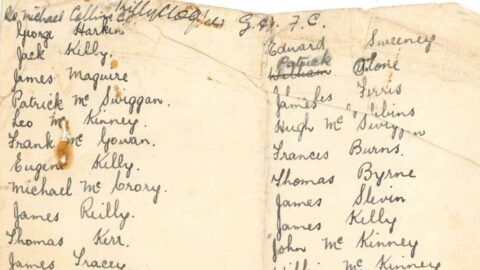 Rev Michael Collins C.C. Killyclogher G.A.F.C.
George Harkin
Jack Kelly.
James Maguire
Patrick Mc Swiggan.
Leo Mc Kinney.
Frank Mc Gowan.
Eugene Kelly.
Michael Mc Crory.
James Reilly.
Thomas Kerr.
James Tracey
Edward Sweeney
Patrick
William Slone
James Ferris
Hugh Mc Swiggan
Frances Burns.
Thomas Byrne
James Slevin
James Kelly
John Mc Kinney
Mc Kinney